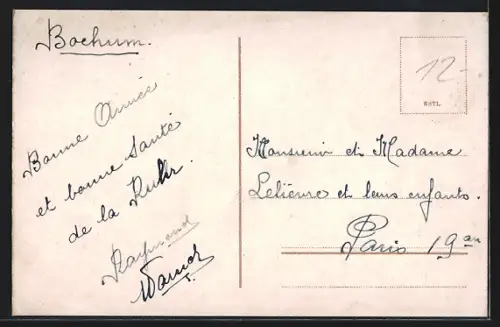 Bochum.
Bonne Année
et bonne Santé
de la Ruhr.
Raymond
12-
ESTL.
Monsieur et Madame
Lelièvre et leurs enfants.
Paris 19